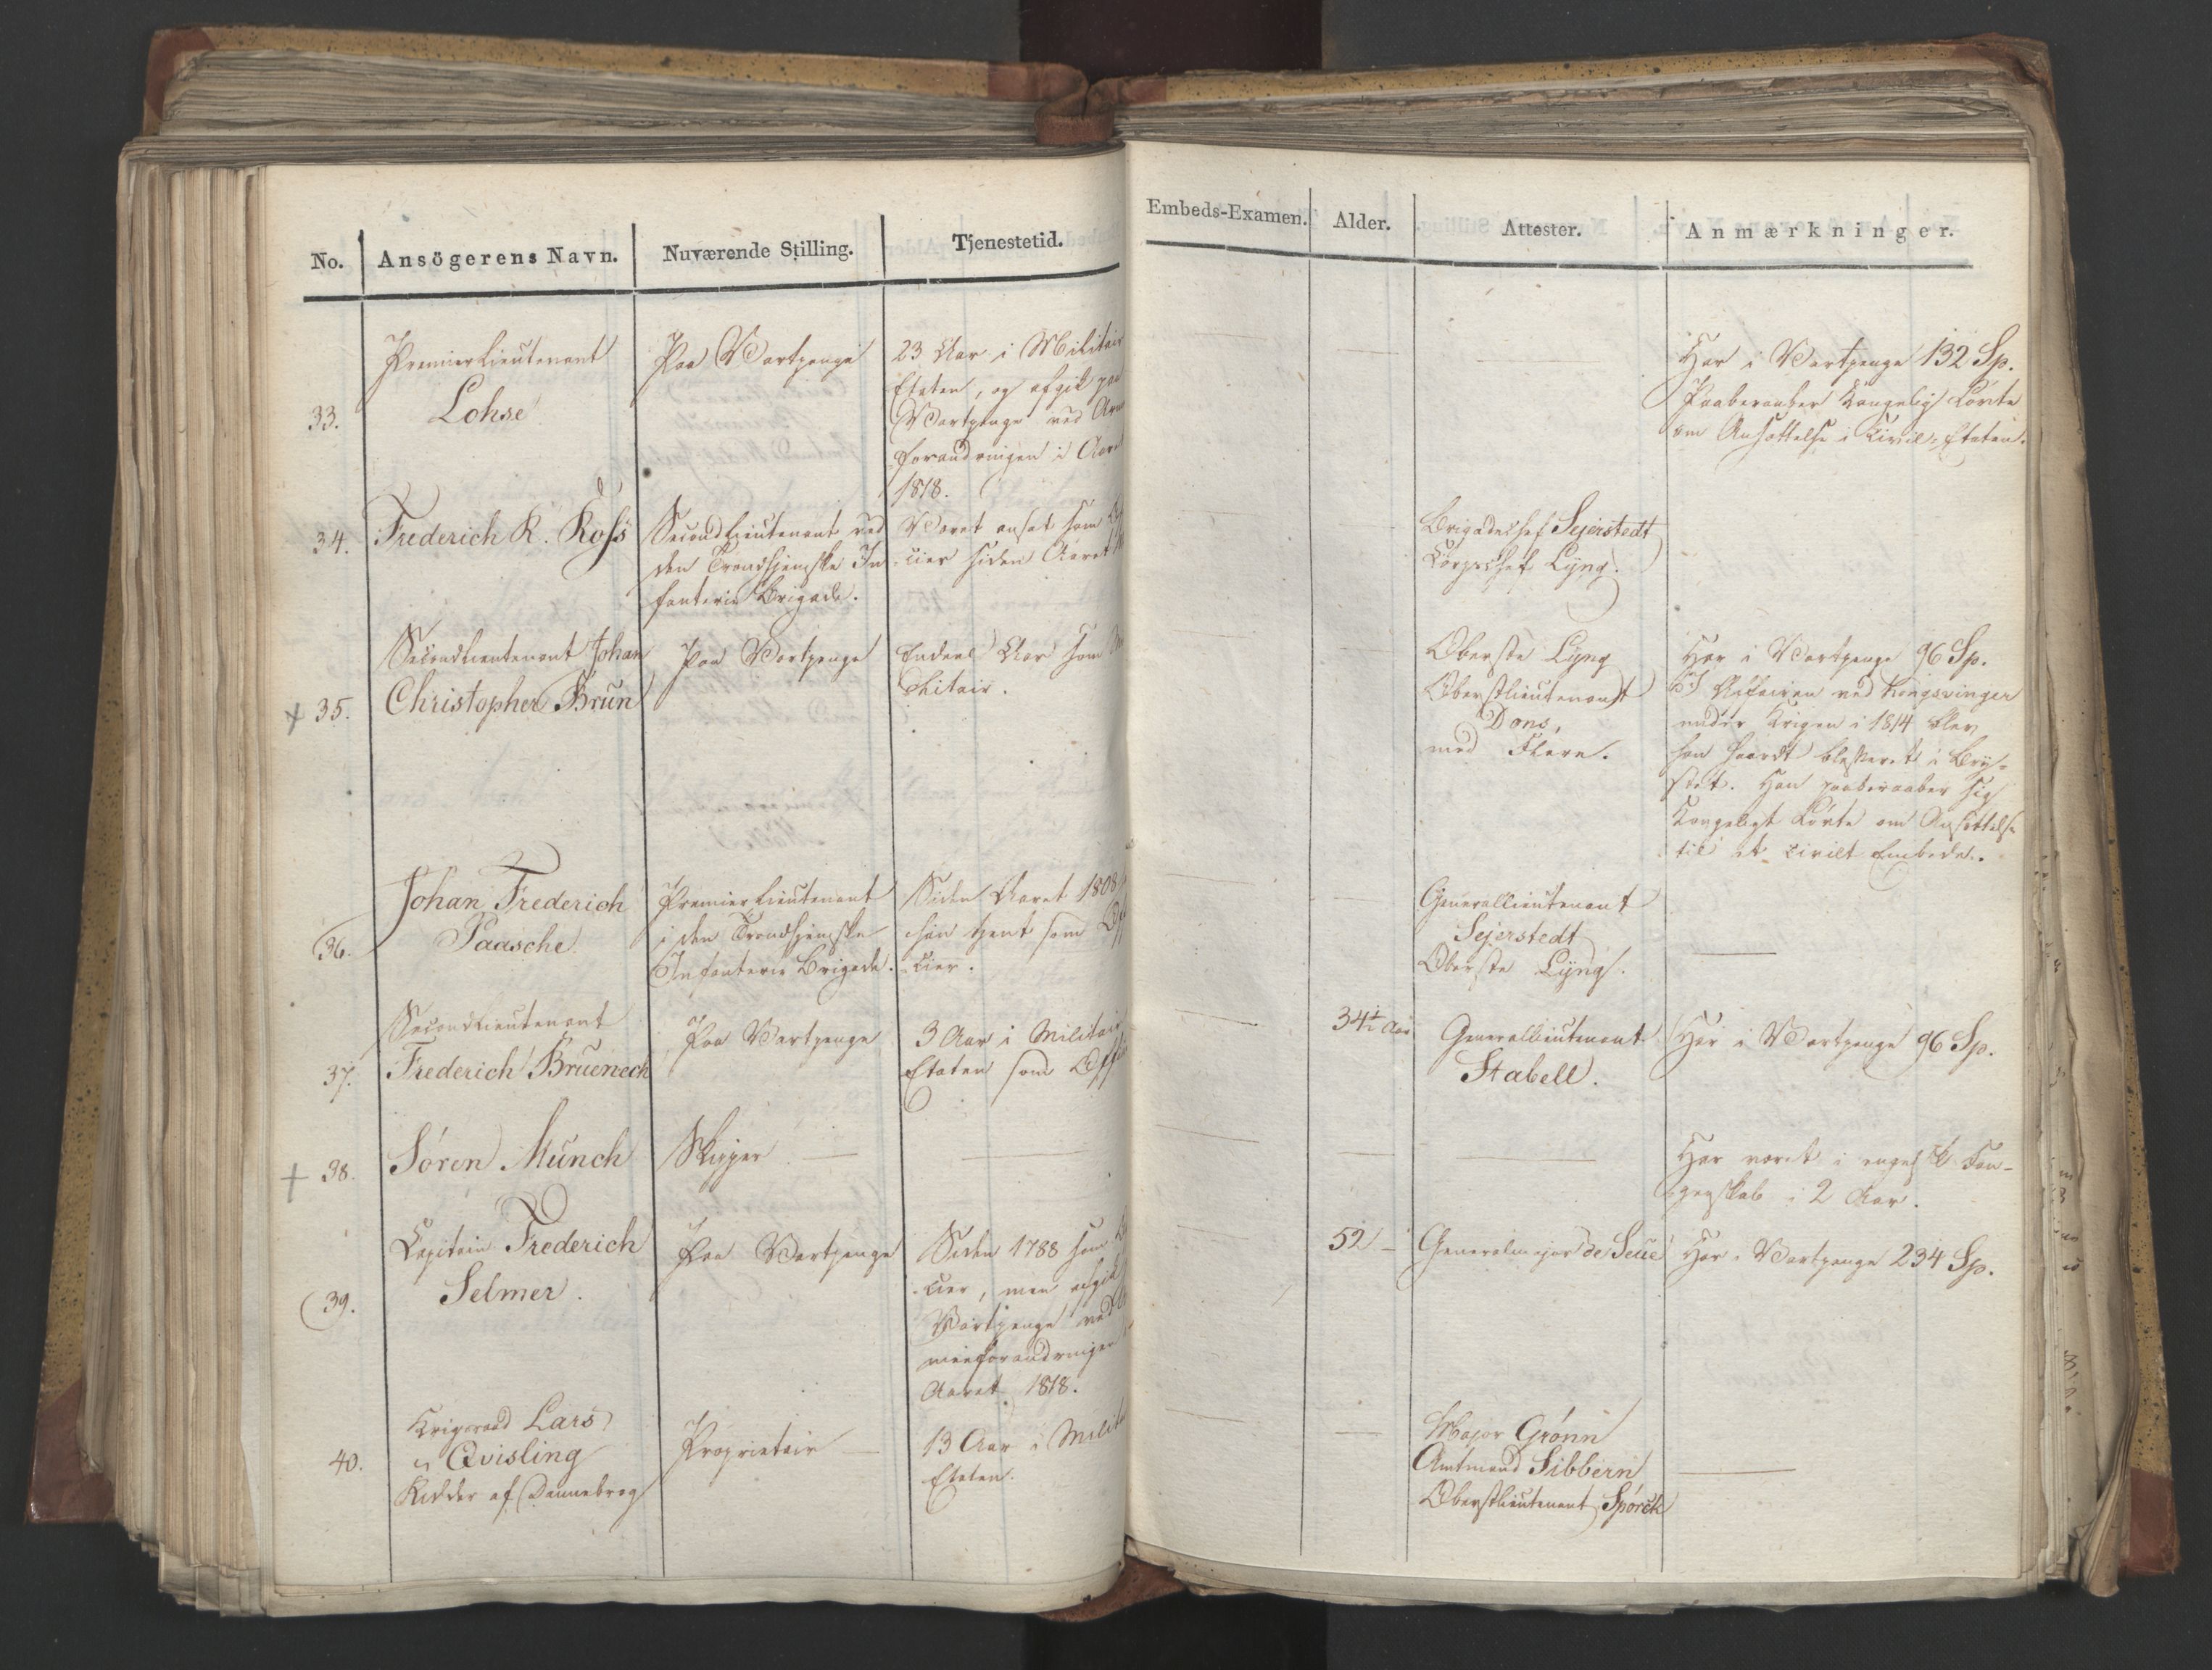 No. Ansögerens Navn. Nuværende Stilling. Tjenestetid. Embeds-Examen. Alder. Attester. Anmærkninger.
33.
Premierlieutenant
Lohse
Paa Vartpenge
23 Aar i Militair
Etaten, og afgik paa
Vartpenge ved
forandringen i Aaret
1818.
Har i Vartpenge 132 Sp.
Paaberaaber Kongelig Löfte
om Ansættelse i Civil-Etaten.
34.
Frederich R. Koss
Secondlieutenant ved
den Trondhjemske In
fanterie Brigade.
Været ansat som
cier siden Aaret
Brigadechef Sejerstedt
Corpschef Lyng.
+ 35.
Secondlieutenant Johan
Christopher Brun
Paa Vartpenge
Endeel Aar som
litair.
Oberste Lyng
Oberstlieutenant
Dons,
med Flere.
Har i Vartpenge 96 Sp.
I Affairen ved Kongsvinger
under Krigen i 1814 blev
han haardt blesseret i Bry-
stet. Han paaberaaber sig
Kongeligt Löfte om Ansættelse
til et civilt Embede.
36.
Johan Frederich
Paasche
Premierlieutenant
i den Trondhjemske
Infanterie Brigade.
Siden Aaret 1808
han tjent som
cier.
Generallieutenant
Sejerstedt
Oberste Lyng.
37.
Secondlieutenant
Frederich Bruenech
Paa Vartpenge
3 Aar i Militair
Etaten som
34½ Aar
Generallieutenant
Stabell.
Har i Vartpenge 96 Sp.
+ 38.
Sören Munch
Skipper
Har været i engelsk Fan-
genskab i 2 Aar.
39.
Capitain Frederich
Selmer.
Paa Vartpenge
Siden 1788 som
cier, men afgik
Vartpenge ved
meeforandringen
Aaret 1818.
52
Generalmajor de Seue
Har i Vartpenge 234 Sp.
40.
Krigsraad Lars
Qvisling
Ridder af Dannebrog
Proprietair
13 Aar i
Etaten.
Major Grönn
Amtmand Sibbern
Oberstlieutenant Spörck